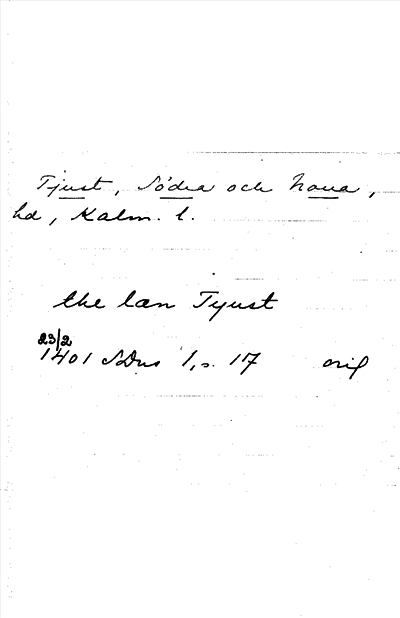 Tjust, Södra och Norra,
hd, Kalm. l.
the læn Tyust
23/2
1401 SDns 1, s. 17 orig